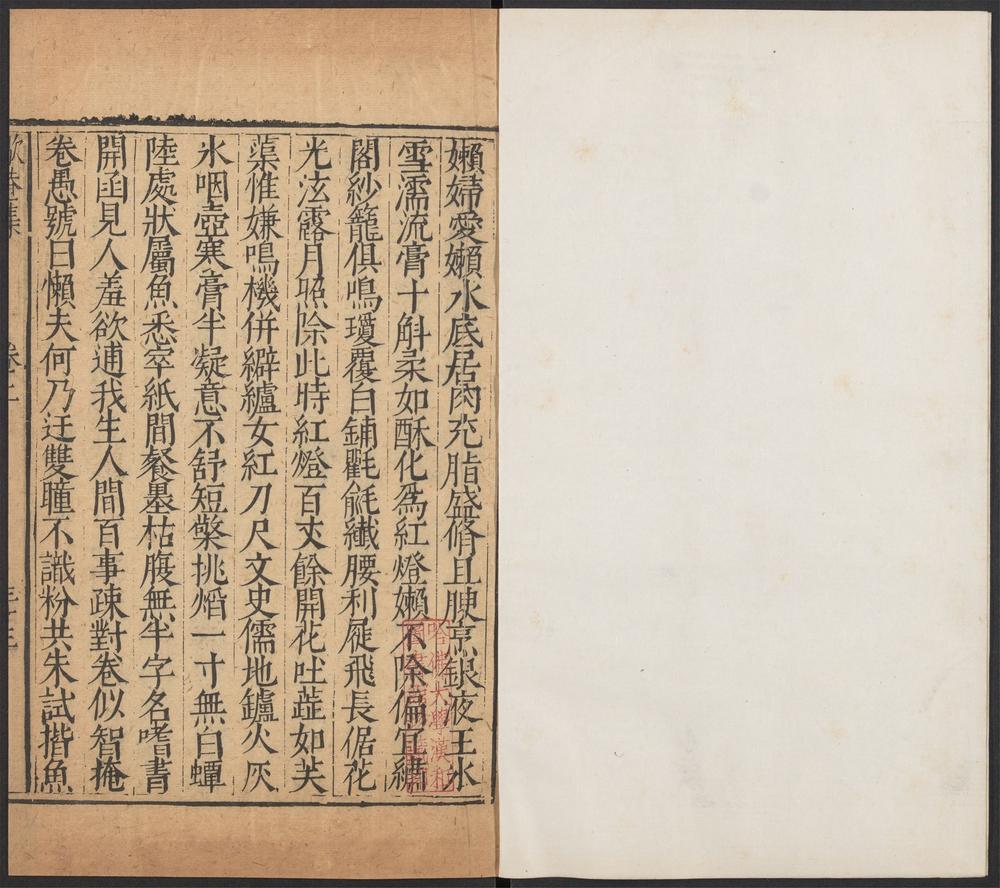 嬾婦愛嬾水底居肉充脂盛脩且腴烹銀液玉水
雪濡流膏十斛柔如酥化爲紅燈嬾不除偏宜繡
閣紗籠俱鳴瓊覆白鋪氍毹纖腰利屣飛長倨花
光泫露月照除此時紅燈百丈餘開花吐蘂如芙
蕖惟嫌鳴機併纑女紅刀尺文史儒地鑪火灰
氷咽壺寒膏半凝意不舒短檠挑熖一寸無白蟫
陸處狀屬魚悉窣紙間餐墨枯腹無半字名嗜書
開函見人羞欲逋我生人間百事疎對卷似智掩
卷愚號曰懶夫何乃迂雙瞳不識粉共朱試揩魚
卷二
哈佛大學漢和
圖書館